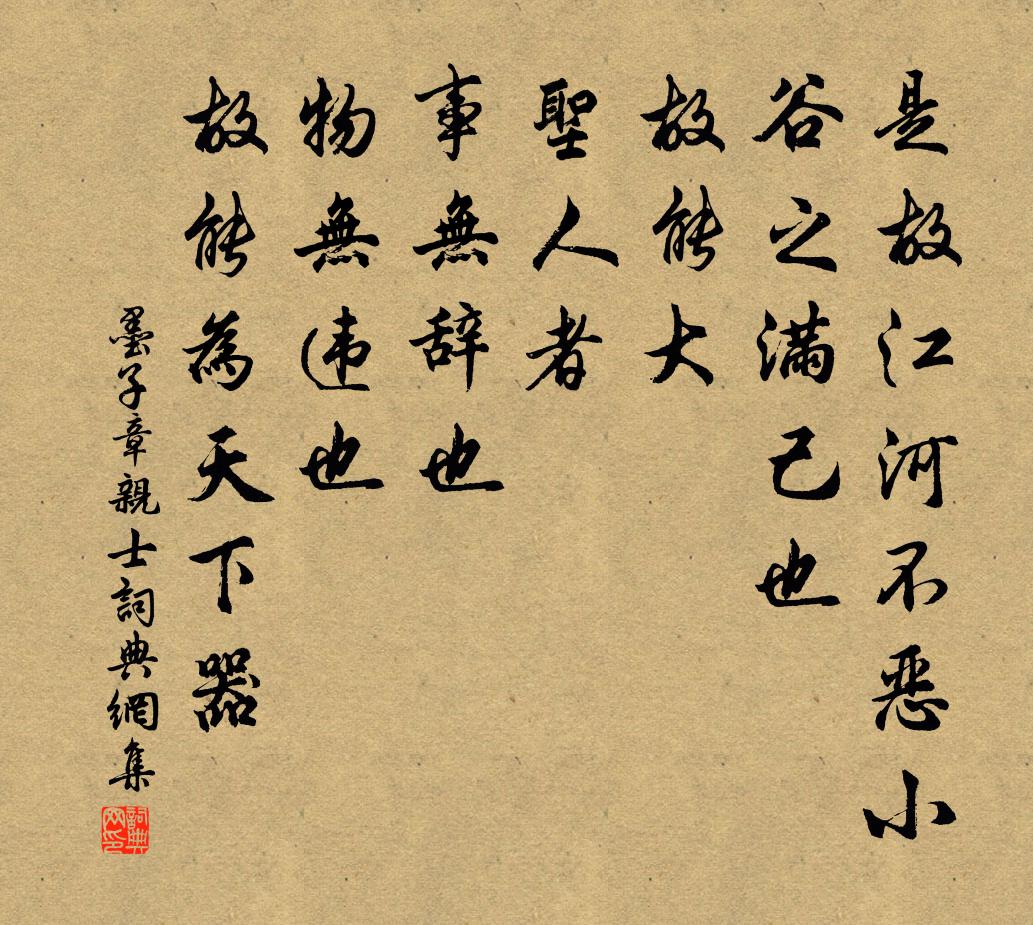 是故江河不恶小
谷之满己也
故能大
聖人者
事無辞也
物無违也
故能為天下器
墨子章親士詞典網集
詞典网印